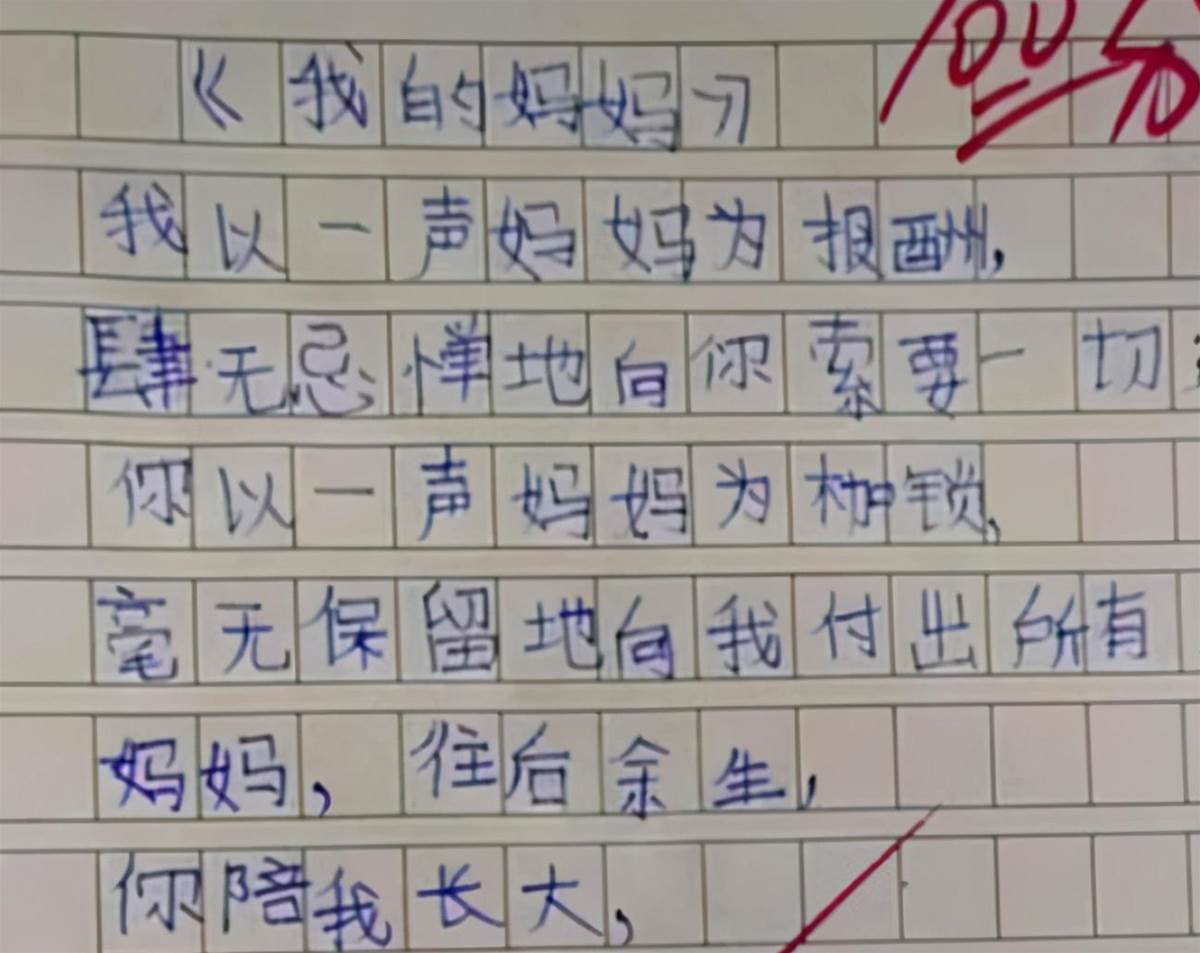 《我的妈妈》
100分
我以一声妈妈为报酬,
肆无忌惮地向你索要一切
你以一声妈妈为枷锁,
毫无保留地向我付出所有
妈妈,往后余生,
你陪我长大,